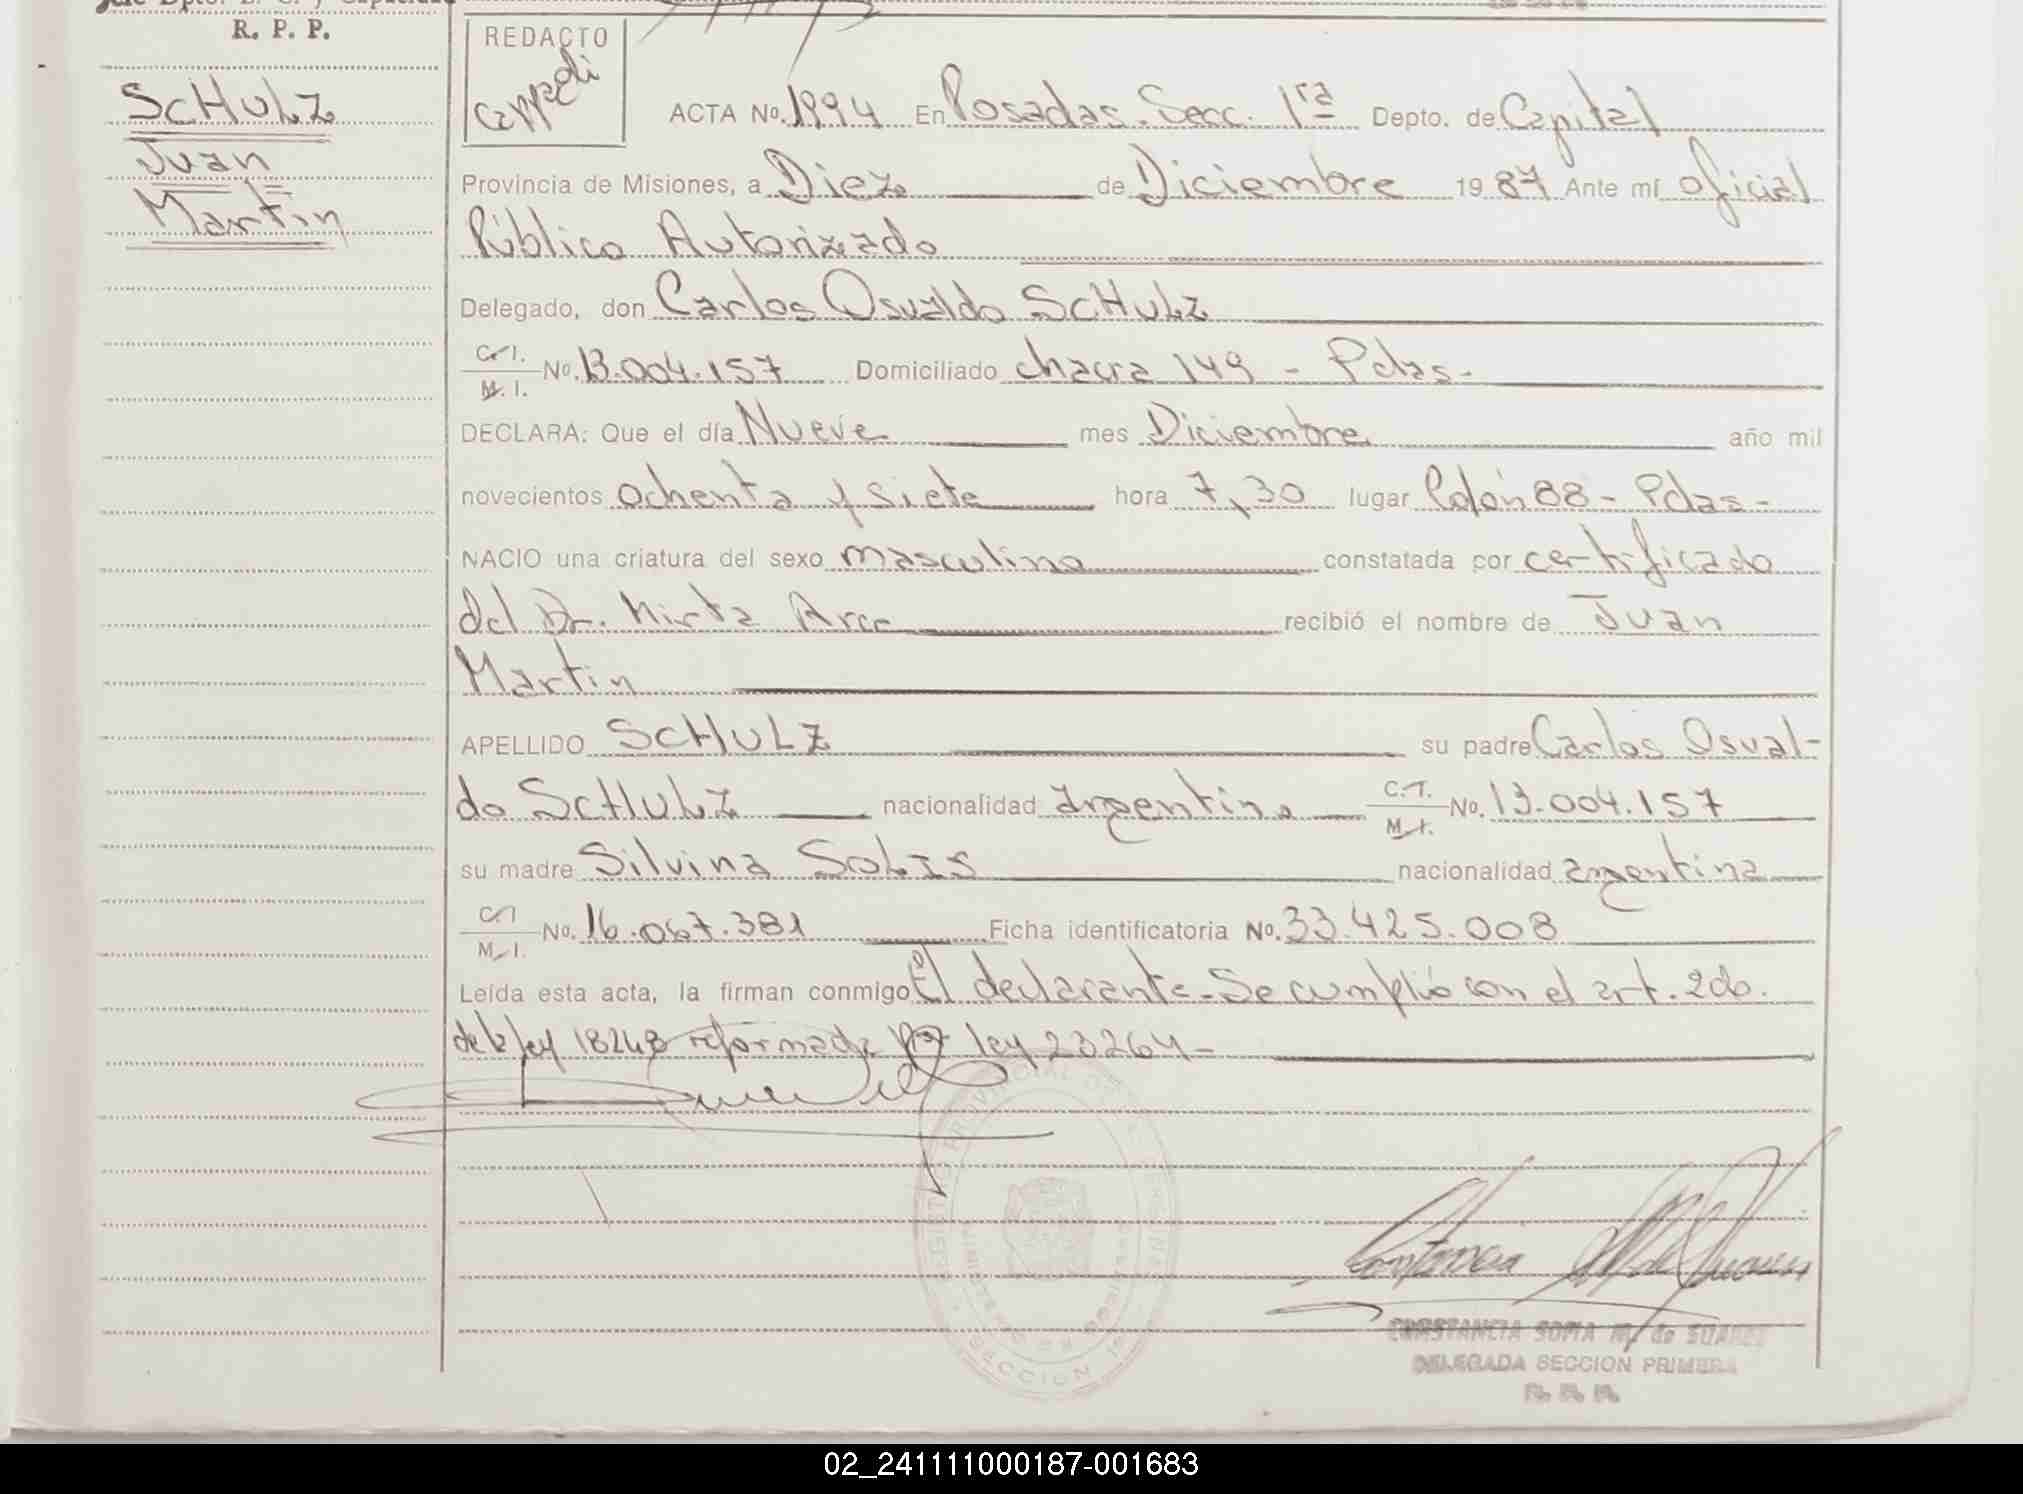 R. P. P.
SCHULZ
Juan
Martín
REDACTO
ACTA No. 1994 En Posadas. Secc. 1ra Depto. de Capital
Provincia de Misiones, a Diez de Diciembre 1987 Ante mí oficial
Público Autorizado
Delegado, don Carlos Osvaldo SCHULZ
C. I. / M. I. No. 13.004.157 Domiciliado chacra 149 - Pdas.
DECLARA: Que el día Nueve mes Diciembre año mil
novecientos ochenta y siete hora 7,30 lugar 88 - Pdas -
NACIO una criatura del sexo masculino constatada por certificado
del Dr. Mirta Arce recibió el nombre de Juan
Martin
APELLIDO SCHULZ su padre Carlos Osval-
do SCHULZ nacionalidad argentino C. I. / M. I. No. 13.004.157
su madre Silvina SOLIS nacionalidad argentina
C. I. / M. I. No. 16.067.381 Ficha identificatoria No. 33.425.008
Leída esta acta, la firman conmigo El declarante - Se cumplió con el art. 2do.
de la ley 18248 reformada ley 23264 -
CONSTANCIA SOFIA M. de SUAREZ
DELEGADA SECCION PRIMERA
02_241111000187-001683